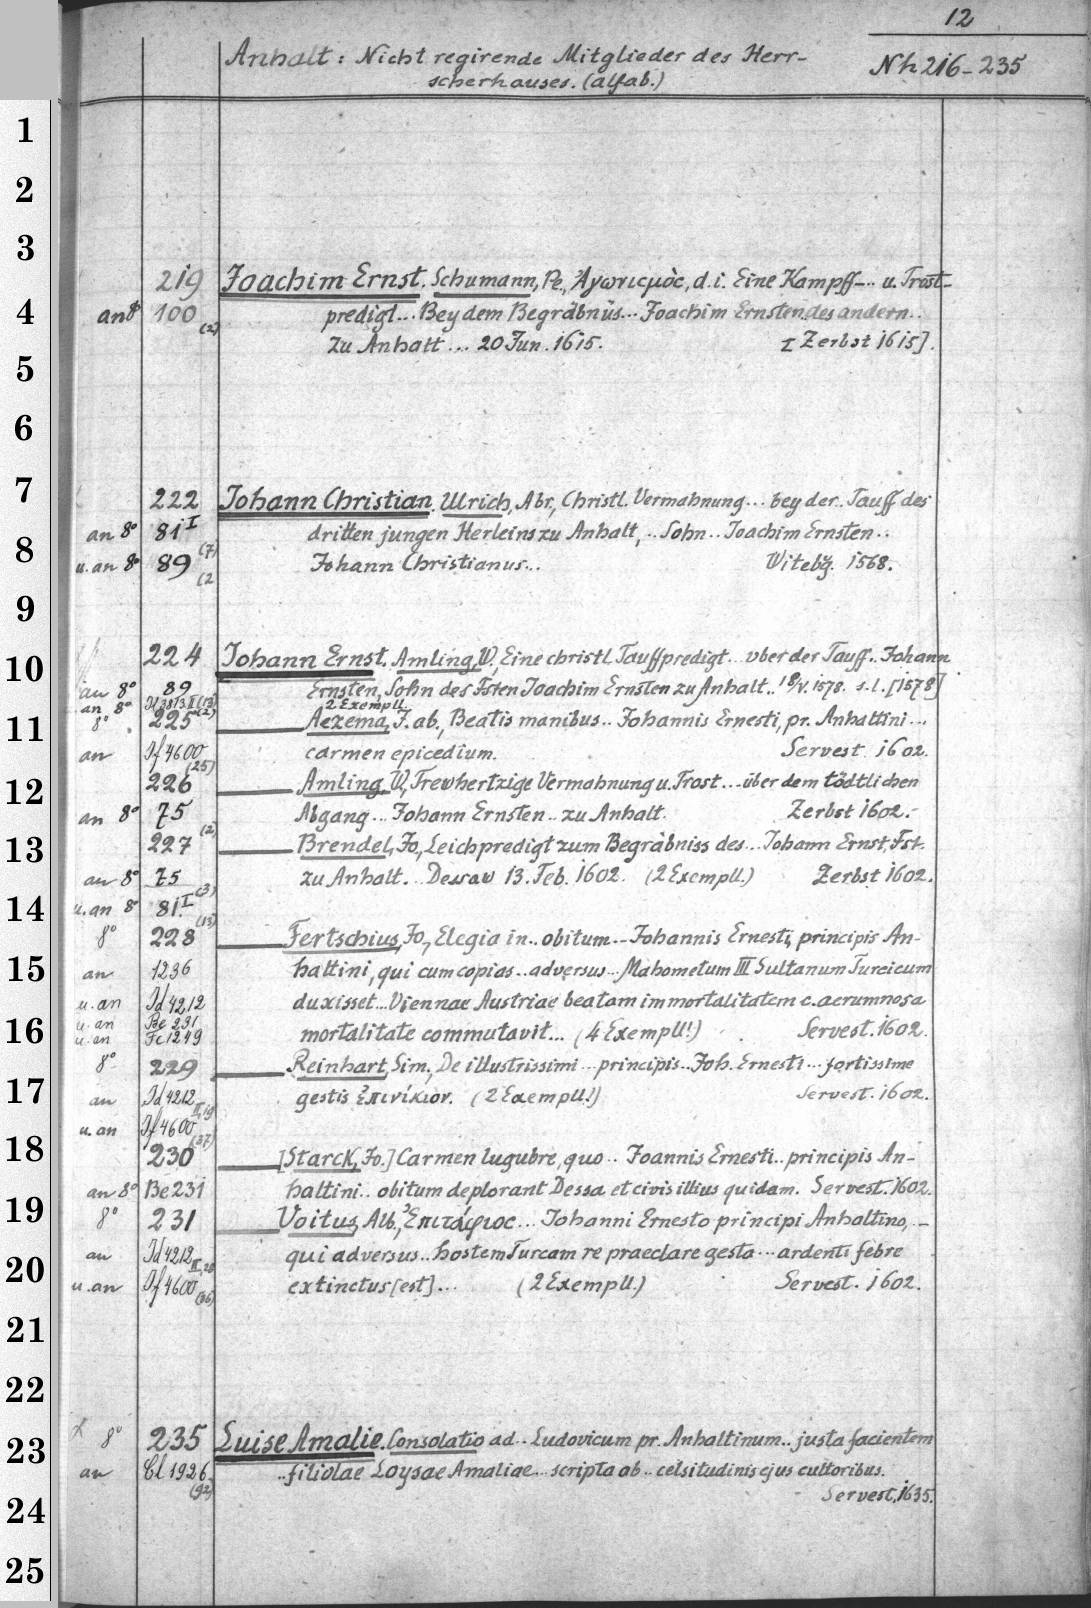 12
Anhalt: Nicht regirende Mitglieder des Herr-
scherhauses. (alfab.)
Nh 216-235
1
2
3
219 Joachim Ernst. Schumann, Pe., Ἀγωνισμὸς, d.i. Eine Kampff-... u. Trost-
4
an 8° 100 (2) predigt... Bey dem Begräbnüs... Joachim Ernsten des andern..
zu Anhalt... 20 Jun. 1615. [Zerbst 1615].
5
6
7
222 Johann Christian. Ulrich, Abr., Christl. Vermahnung... bey der Tauff des
an 8° 81 I (7) dritten jungen Herleins zu Anhalt,.. Sohn.. Joachim Ernsten..
8
u. an 8° 89 (2 Johann Christianus... Witebg. 1568.
9
10
224 Johann Ernst. Amling, W., Eine christl. Tauffpredigt... uber der Tauff.. Johann
an 8° 89 Ernsten, Sohn des Fsten Joachim Ernsten zu Anhalt.. 18/V. 1578. s.l. [1578]
an 8°
2 Exempll.
11
8° 225 Aezema, J. ab, Beatis manibus.. Johannis Ernesti, pr. Anhaltini...
an If 4600 (25) carmen epicedium. Servest 1602.
12
226 Amling, W., Trewhertzige Vermahnung u. Trost... über dem tödtlichen
an 8° 75 (2) Abgang... Johann Ernsten.. zu Anhalt. Zerbst 1602.-
13
227 Brendel, Jo., Leichpredigt zum Begräbniss des... Johann Ernst, Fst.
an 8° 75 (3) zu Anhalt... Dessaw 13. Feb. 1602. (2 Exempll.) Zerbst 1602.
14
u. an 8° 81 I (13)
8° 228 Fertschius, Jo., Elegia in.. obitum... Johannis Ernesti, principis An-
15
an 1236 haltini, qui cum copias.. adversus... Mahometum III Sultanum Turcicum
u. an Id 4212 duxisset... Viennae Austriae beatam immortalitatem c. aerumnosa
u. an Be 231
16
u. an Fc 1249 mortalitate commutavit... (4 Exempll!) Servest. 1602.
8° 229 Reinhart, Sim., De illustrissimi... principis.. Joh. Ernesti... fortissime
17
an Id 4212 II, 19 gestis Ἐπινίκιον. (2 Exempll!) Servest. 1602.
u. an If 4600 (37)
18
230 [Starck, Jo.] Carmen lugubre, quo.. Joannis Ernesti.. principis An-
an 8° Be 231 haltini.. obitum deplorant Dessa et civis illius quidam. Servest. 1602.
19
8° 231 Voitus, Alb., Ἐπιτάφιος... Johanni Ernesto principi Anhaltino,-
an Id 4212 II, 20 qui adversus.. hostem Turcam re praeclare gesta... ardenti febre
20
u. an If 4600 (36) extinctus [est]... (2 Exempll.) Servest. 1602.
21
22
8° 235 Luise Amalie. Consolatio ad.. Ludovicum pr. Anhaltinum.. justa facientem
23
an Cl 1926 (92) ..filiolae Loysae Amaliae... scripta ab.. celsitudinis ejus cultoribus.
Servest. 1635.
24
25